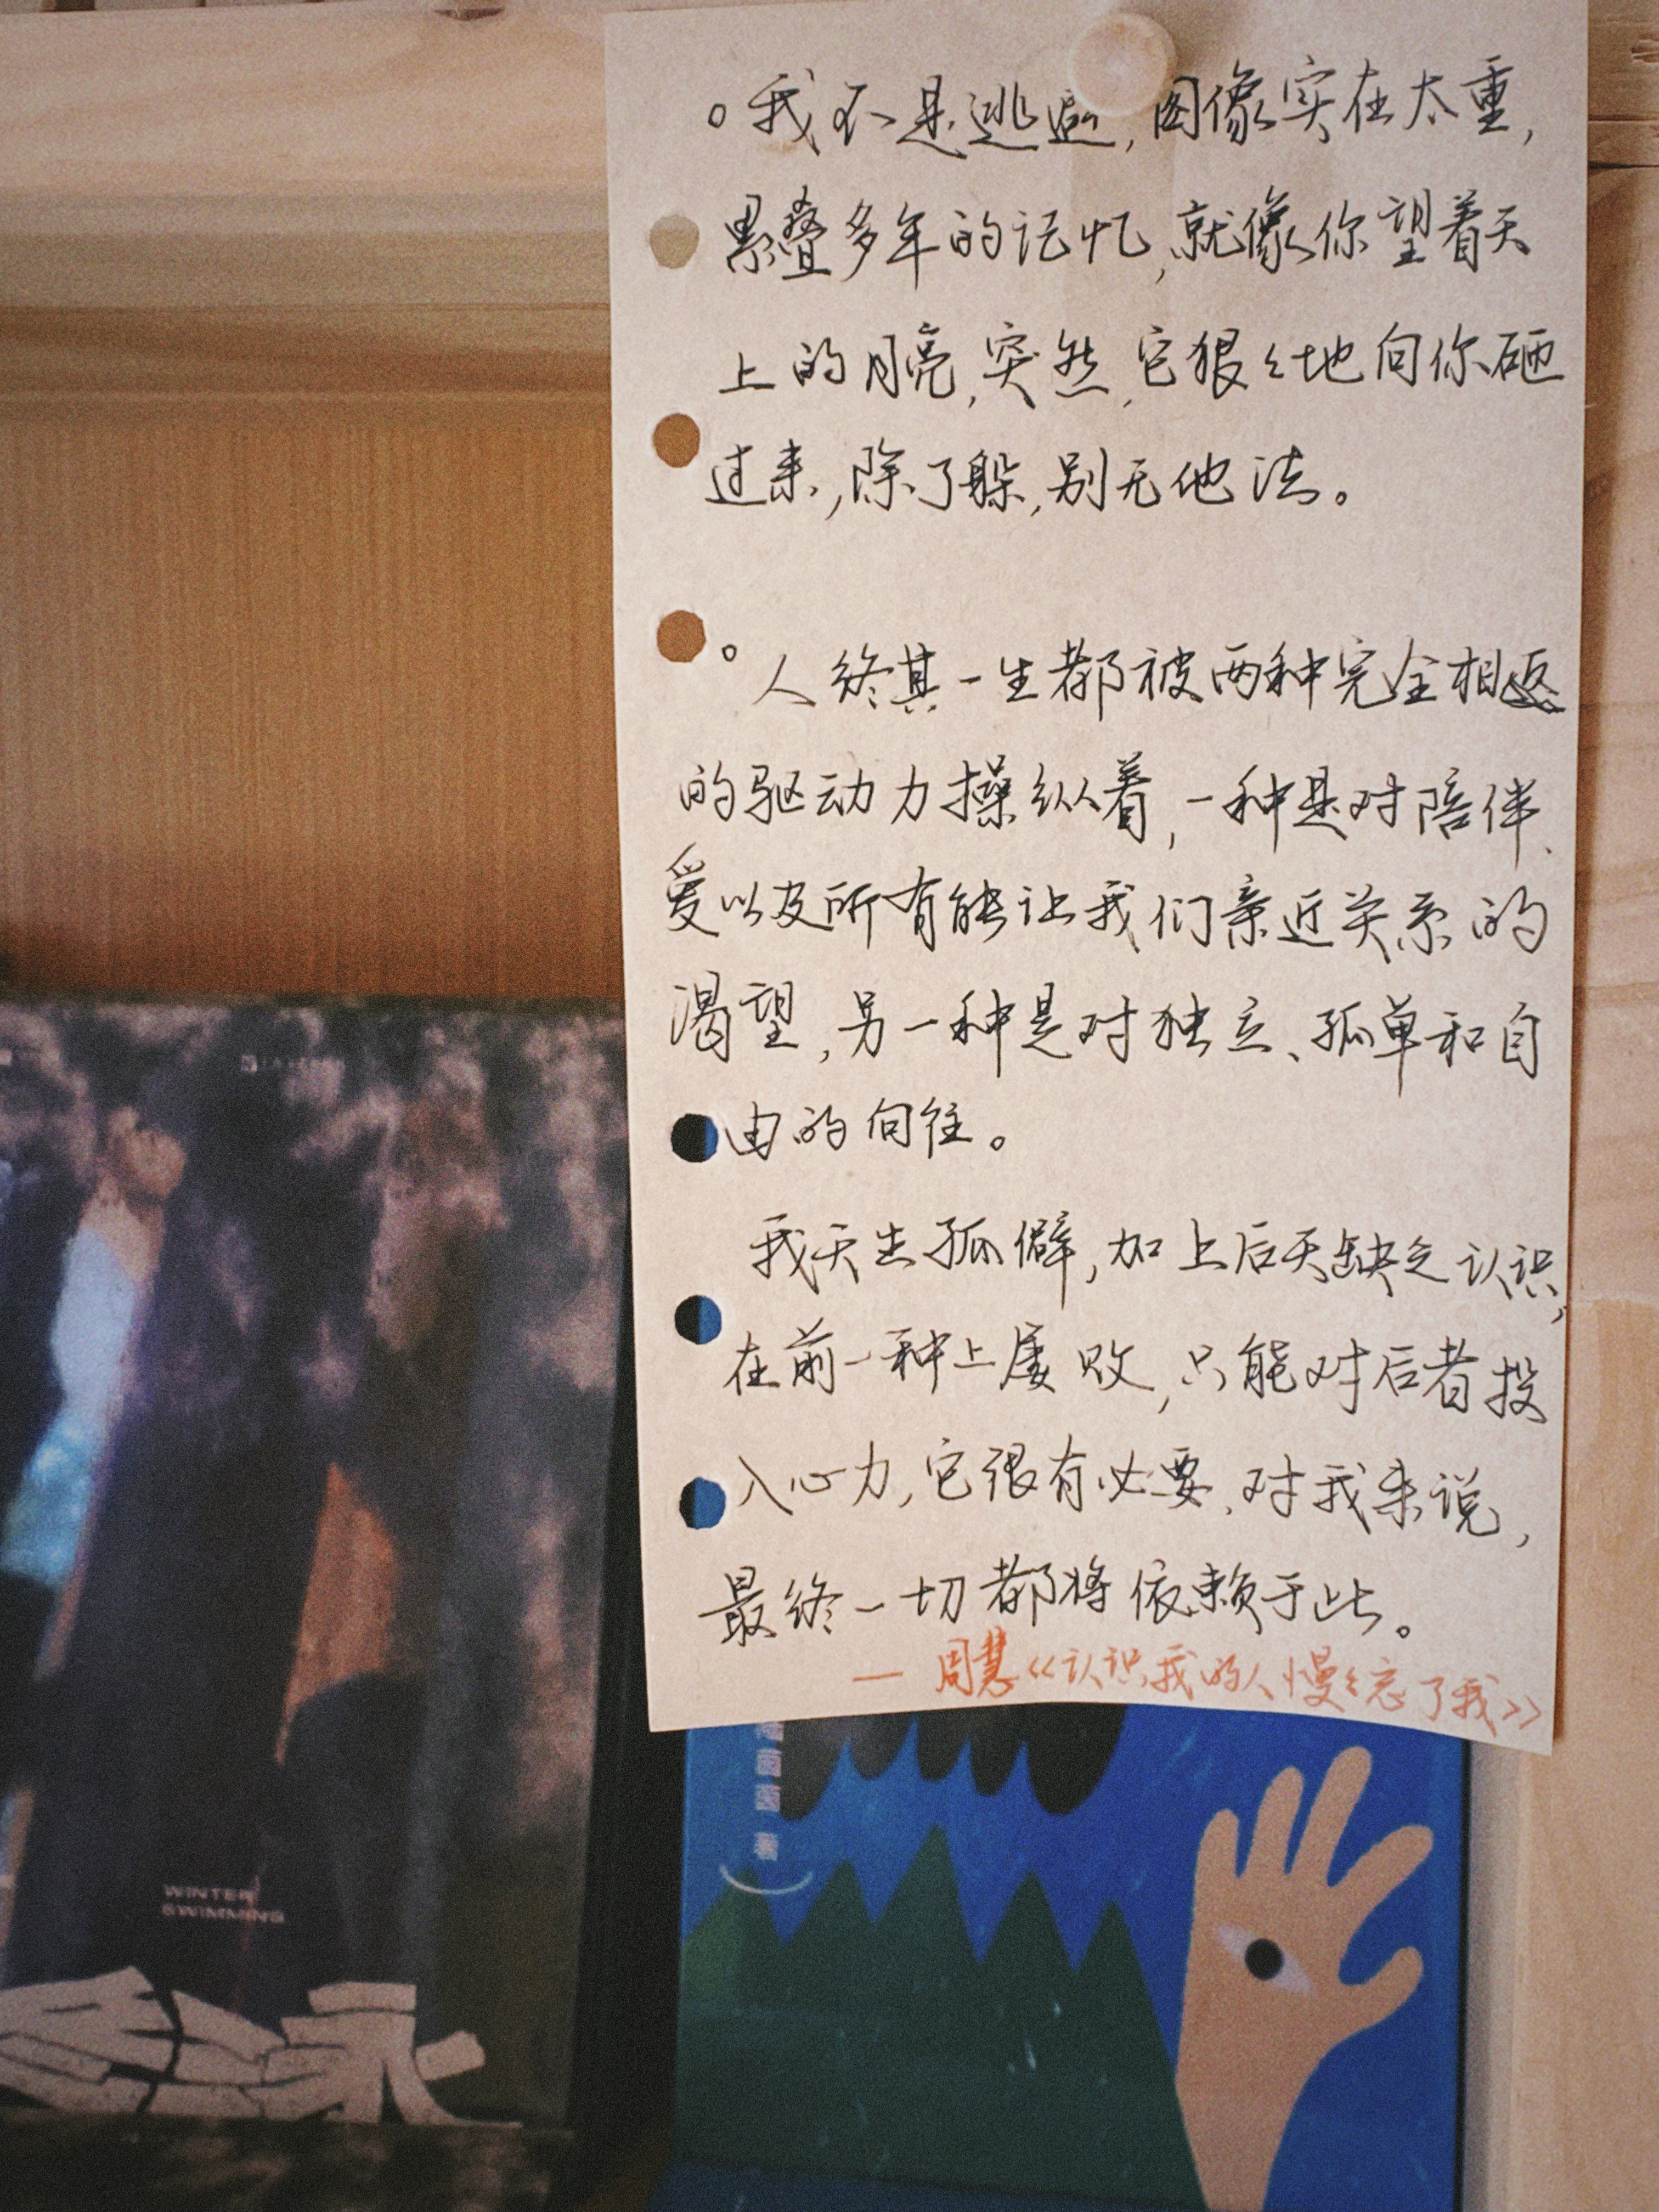 。我不是逃避,图像实在太重,
累叠多年的记忆,就像你望着天
上的月亮,突然,它狠々地向你砸
过来,除了躲,别无他法。
。人终其一生都被两种完全相返
的驱动力操纵着,一种是对陪伴、
爱以及所有能让我们亲近关系的
渴望,另一种是对独立、孤单和自
由的向往。
我天生孤僻,加上后天缺乏认识,
在前一种上屡败,只能对后者投
入心力,它很有必要,对我来说,
最终一切都将依赖于此。
— 周慧《认识我的人慢々忘了我》
WINTER
SWIMMING
冬泳
著